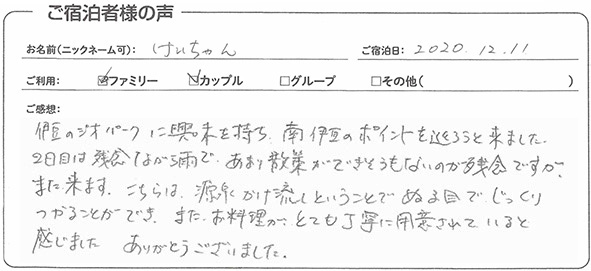 ご宿泊者様の声
お名前(ニックネーム可): けいちゃん ご宿泊日: 2020.12.11
ご利用: ☑ファミリー ☑カップル □グループ □その他( )
ご感想:
伊豆のジオパークに興味を持ち、南伊豆のポイントを巡ろうと来ました。
2日目は残念ながら雨で、あまり散策ができそうもないのが残念ですが、
また来ます。こちらは、源泉かけ流しということでぬる目で、じっくり
つかることができ、また、お料理が、とても丁寧に用意されていると
感じました ありがとうございました。